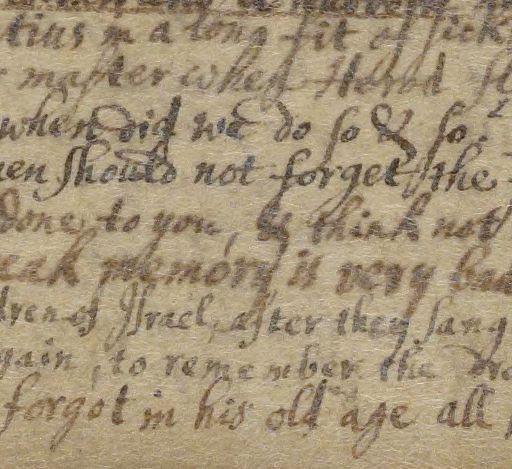 tius in a long fit of sick
master when Herod
when did we do so & so?
en should not forget the
done to you, & think not
eak memory is very bad
dren of Israel, after they sang
gain, to remember the
forgot in his old age all